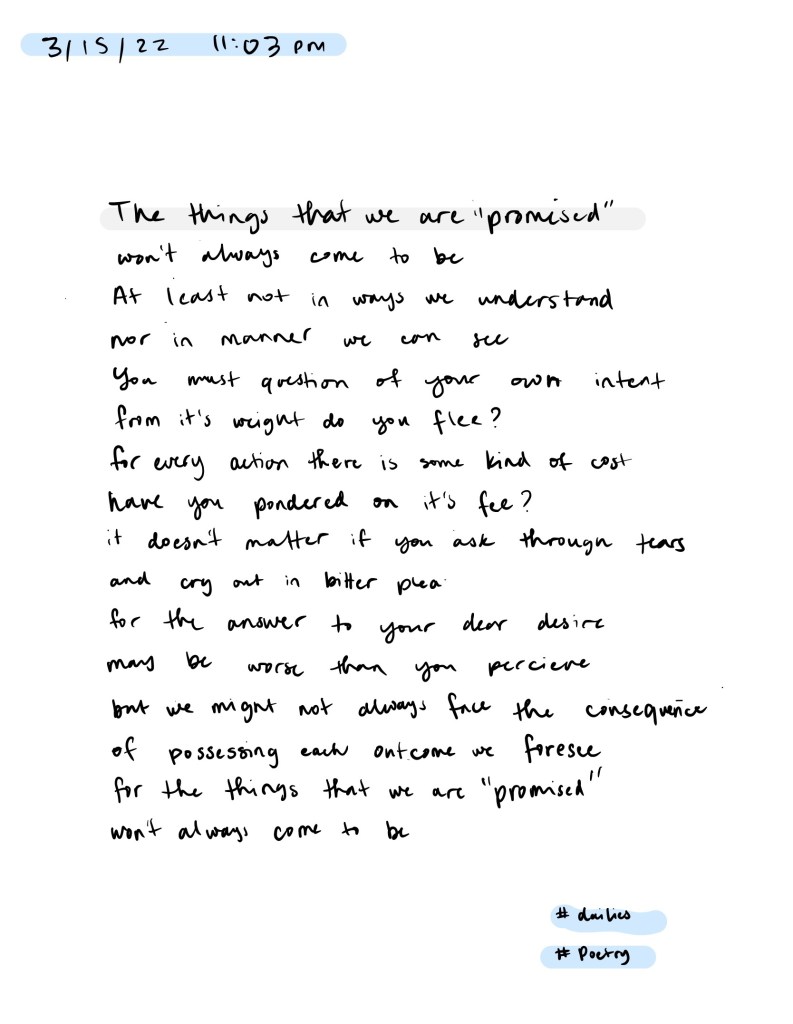 3/15/22 11:03 pm
The things that we are "promised"
won't always come to be
At least not in ways we understand
nor in manner we can see
You must question of your own intent
from it's weight do you flee?
for every action there is some kind of cost
have you pondered on it's fee?
it doesn't matter if you ask through tears
and cry out in bitter plea
for the answer to your dear desire
may be worse than you percieve
but we might not always face the consequence
of possessing each outcome we foresee
for the things that we are "promised"
won't always come to be
# dailies
# Poetry